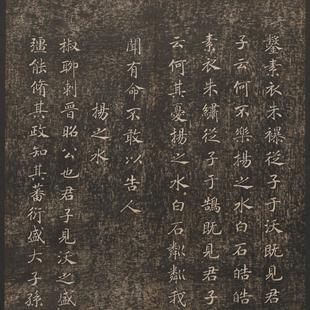 鑿素衣朱襮從子于沃既見君
子云何不樂揚之水白石皓皓
素衣朱繡從子于鵠既見君子
云何其憂揚之水白石粼粼我
聞有命不敢以告人
揚之水
椒聊刺晉昭公也君子見沃之盛
彊能脩其政知其蕃衍盛大子孫